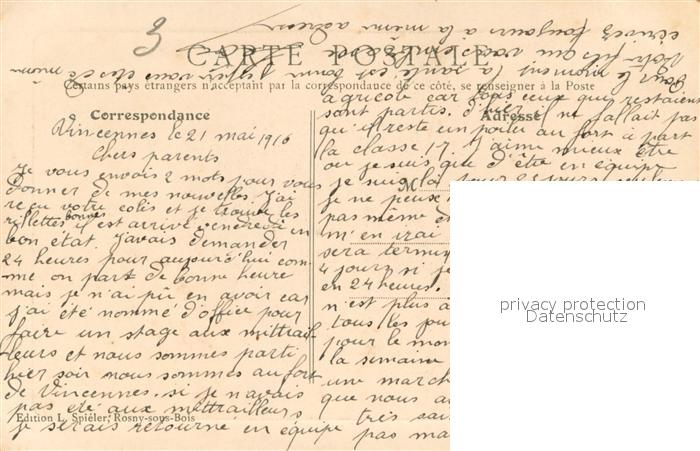 3
CARTE POSTALE
Certains pays étrangers n'acceptant pas la correspondance de ce côté, se renseigner à la Poste
Correspondance
Adresse
Vincennes le 21 mai 1916
Chers parents
Je vous envois 2 mots pour vous
donner de mes nouvelles. J'ai
reçu votre colis et je trouve les
rillettes bonnes il est arrivé vendredi en
bon état. J'avais demander
24 heures pour aujourd'hui com-
me on part de bonne heure
mais je n'ai pû en avoir car
j'ai été nommé d'office pour
faire un stage aux mittrail-
leurs et nous sommes parti
hier soir nous sommes au fort
de Vincennes. si je n'avais
pas été aux mittrailleurs
je serais retourné en équipe
Edition L. Spiéler, Rosny-sous-Bois
agricole car tous ceux que restaient
sont partis. d'hier il ne fallait pas
qu'il reste un poilu au fort à part
la classe 17. J'aime mieux être
ou je suis que d'être en équipe
je suis là pour 25 jours
M
je ne peux
pas même
m'en irai
sera termi
4 jours si je
en 24 heures.
n'est plus
tous les
pour le mo
la semaine
une march
que nous a
très
pas ma
Pour le moment la santé est bonne
Votre fils qui vous embrasse
écrivez toujours à la même adresse
privacy protection
Datenschutz